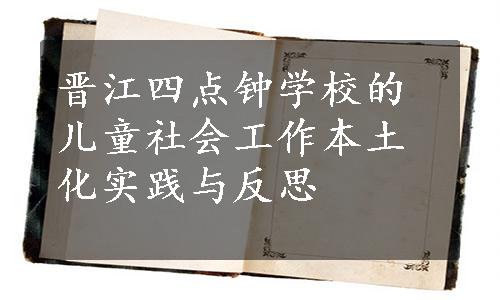 晋江四点钟学校的
儿童社会工作本土
化实践与反思